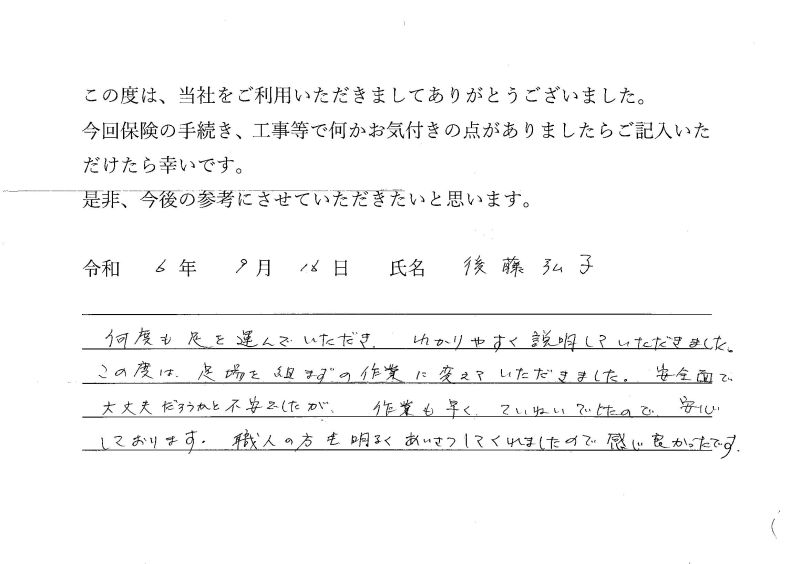 この度は、当社をご利用いただきましてありがとうございました。
今回保険の手続き、工事等で何かお気付きの点がありましたらご記入いた
だけたら幸いです。
是非、今後の参考にさせていただきたいと思います。
令和 6 年 9 月 18 日 氏名 後藤弘子
何度も足を運んでいただき、わかりやすく説明していただきました。
この度は、足場を組まずの作業に変えていただきました。安全面で
大丈夫だろうかと不安でしたが、作業も早く、ていねいでしたので、安心
しております。職人の方も明るくあいさつしてくれましたので感じ良かったです。